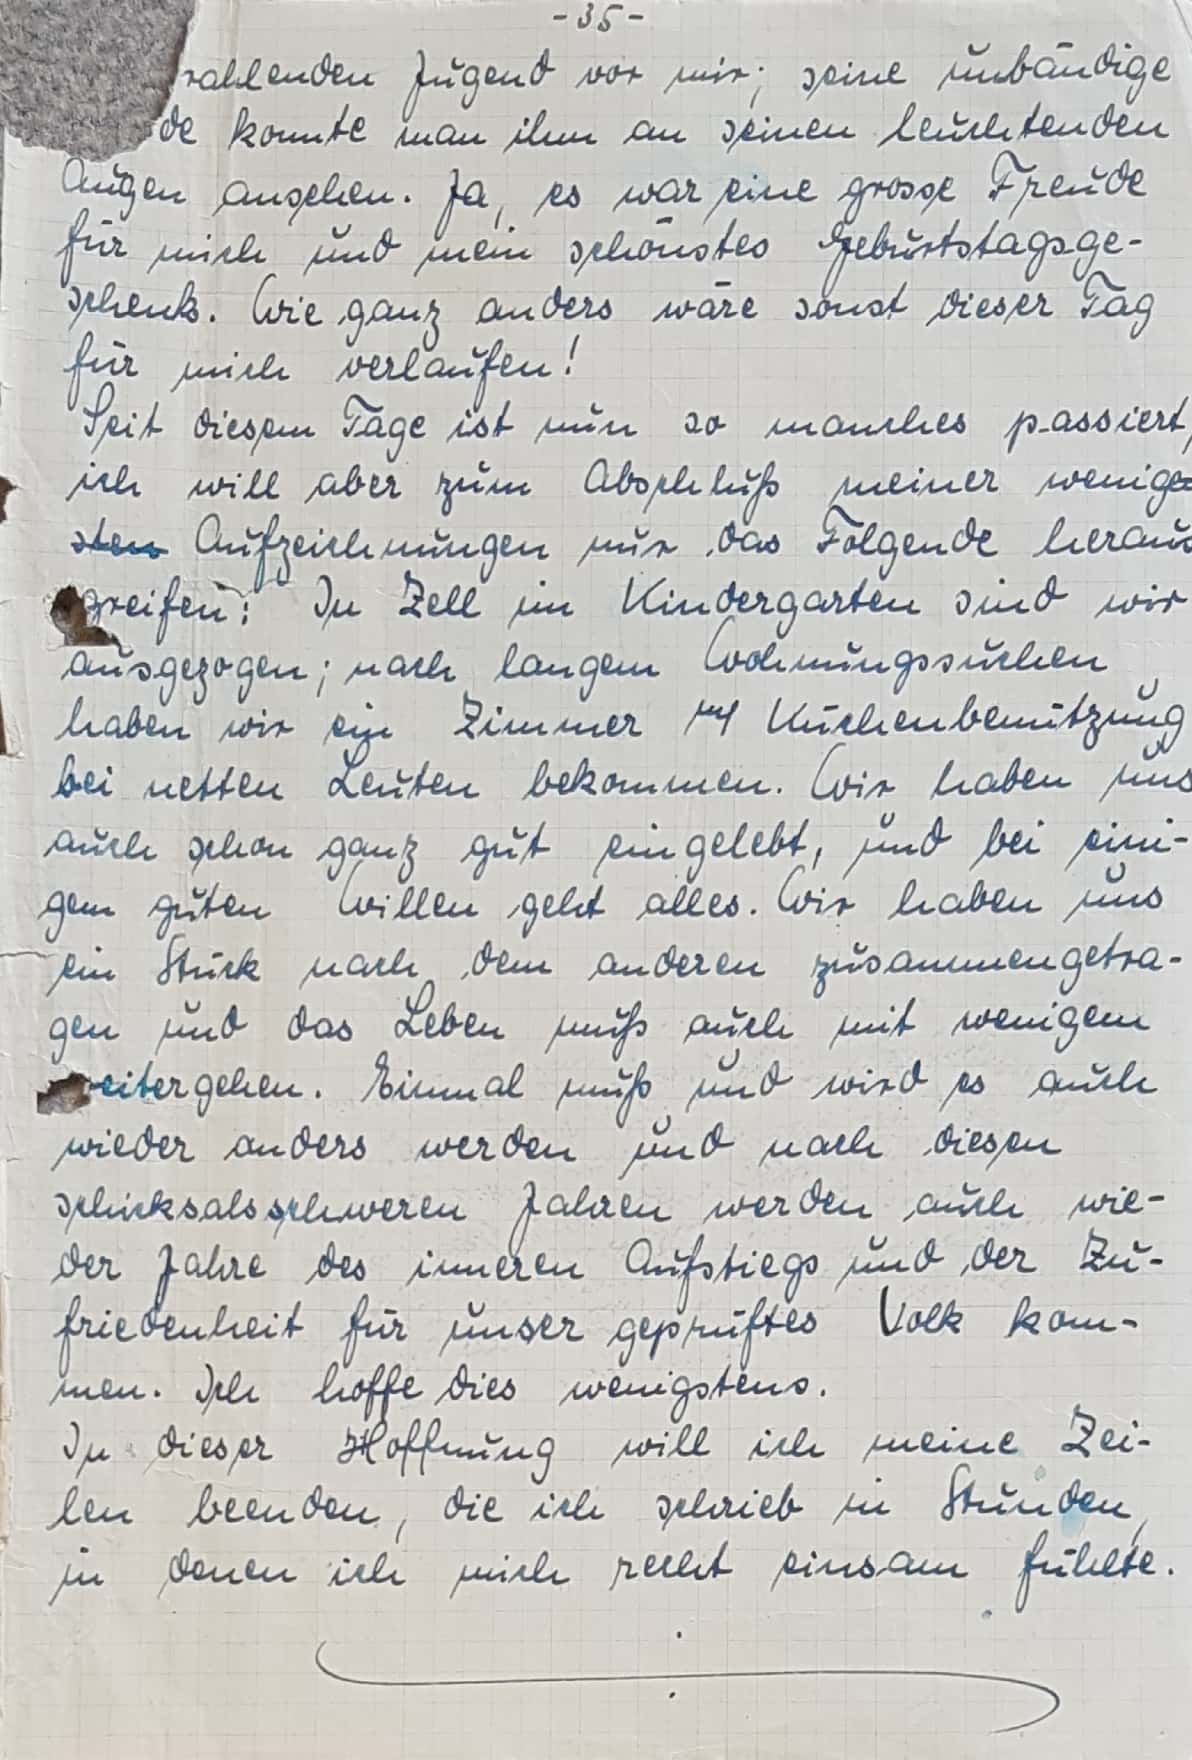 -35-
rahlenden Jugend vor mir; seine unbändige
de konnte man ihm an seinen leuchtenden
Augen ansehen. Ja, es war eine grosse Freude
für mich und mein schönstes Geburtstagsge-
schenk. Wie ganz anders wäre sonst dieser Tag
für mich verlaufen!
Seit diesem Tage ist nun so manches passiert,
ich will aber zum Abschluß meiner wenigen
sten Aufzeichnungen nur das Folgende heraus
greifen: In Zell im Kindergarten sind wir
ausgezogen; nach langem Wohnungssuchen
haben wir ein Zimmer m/ Küchenbenützung
bei netten Leuten bekommen. Wir haben uns
auch schon ganz gut eingelebt, und bei eini-
gem guten Willen geht alles. Wir haben uns
ein Stück nach dem anderen zusammengetra-
gen und das Leben muß auch mit wenigem
eitergehen. Einmal muß und wird es auch
wieder anders werden und nach diesen
schicksalsschweren Jahren werden auch wie-
der Jahre des inneren Aufstiegs und der Zu-
friedenheit für unser geprüftes Volk kom-
men. Ich hoffe dies wenigstens.
In dieser Hoffnung will ich meine Zei-
len beenden, die ich schrieb in Stunden,
in denen ich mich recht einsam fühlte.